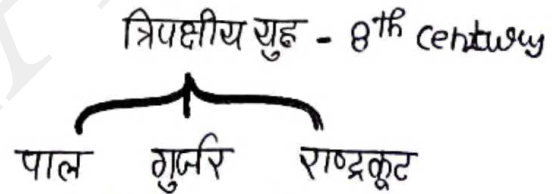 त्रिपक्षीय युद्ध - 8th Century
पाल गुर्जर राष्ट्रकूट